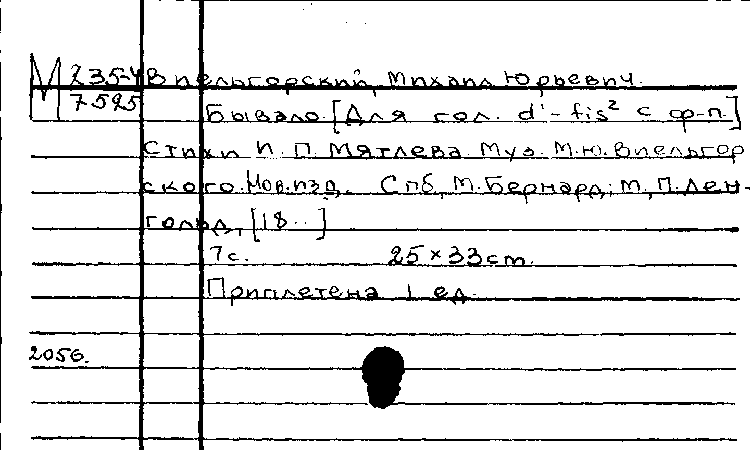 М 235-4 Виельгорский, Михаил Юрьевич.
7525 Бывало [Для гол. d'-fis² с ф-п.]
Стихи И. П. Мятлева Муз. М.Ю. Виельгор
ского. Нов. изд. Спб, М. Бернард; М, П. Лен-
гольд, [18..]
7 с. 25×33 cm.
Приплетена 1 ед.
2056.